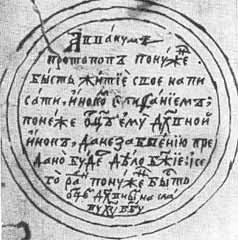 Аввакумъ
протопопъ понуже҆
бысть житиѐ свое напи
сати, иноко҆ епиѳа́ниемъ;
понеже ѻц҃ъ ему̀ дх҃овной
инокъ, да не забве́нию пре
дано бу́де дѣло бж҃ие; и се
го̀ ра́ди понуже бысть
ѻц҃емъ дх҃овнымъ на сла
ву хр҃ту бг҃у